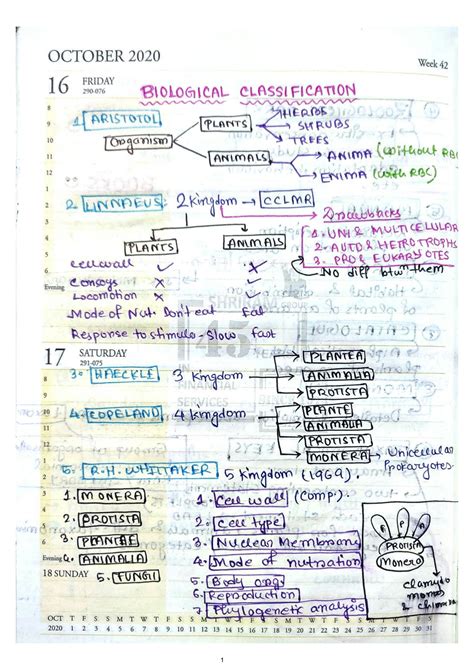 OCTOBER 2020
Week 42
16 FRIDAY
290-076
BIOLOGICAL CLASSIFICATION
1. ARISTOTOL
Organism
PLANTS
HERBS
SHRUBS
TREES
ANIMALS
ANIMA (without RBC)
ENIMA (with RBC)
2. LINNAEUS: 2 kingdom → CCLMR
Drawbacks
1. UNI & MULTICELULAR
2. AUTO & HETROTROPHS
3. PRO & EUKAYOTES
No diff btwn them
PLANTS ANIMALS
cell wall ✓ ×
Consoys × ✓
Locomotion × ✓
Mode of Nut. Don't eat Eat
Response to stimulo - Slow fast
Evening
SHRIRAM
45
FINANCIAL
SERVICES
17 SATURDAY
291-075
3. HAECKLE 3 kingdom
PLANTEA
ANIMALIA
PROTISTA
4. COPELAND 4 kingdom
PLANTE
ANIMALIA
PROTISTA
MONERA → Unicellular Prokaryotes
5. R.H. WHITTAKER 5 kingdom (1969).
1. MONERA
2. PROTISTA
3. PLANTAE
4. ANIMALIA
5. FUNGII
1. Cell wall (Comp.)
2. Cell type
3. Nuclear Membrane
4. Mode of nutration
5. Body org.
6. Reproduction
7. Phylogenetic analysis
F P A
PROTISTA
Monera
clamydo
monas
& chlorella
Evening
18 SUNDAY
OCT T F S S M T W T F S S M T W T F S S M T W T F S S M T W T F S
2020 1 2 3 4 5 6 7 8 9 10 11 12 13 14 15 16 17 18 19 20 21 22 23 24 25 26 27 28 29 30 31
1